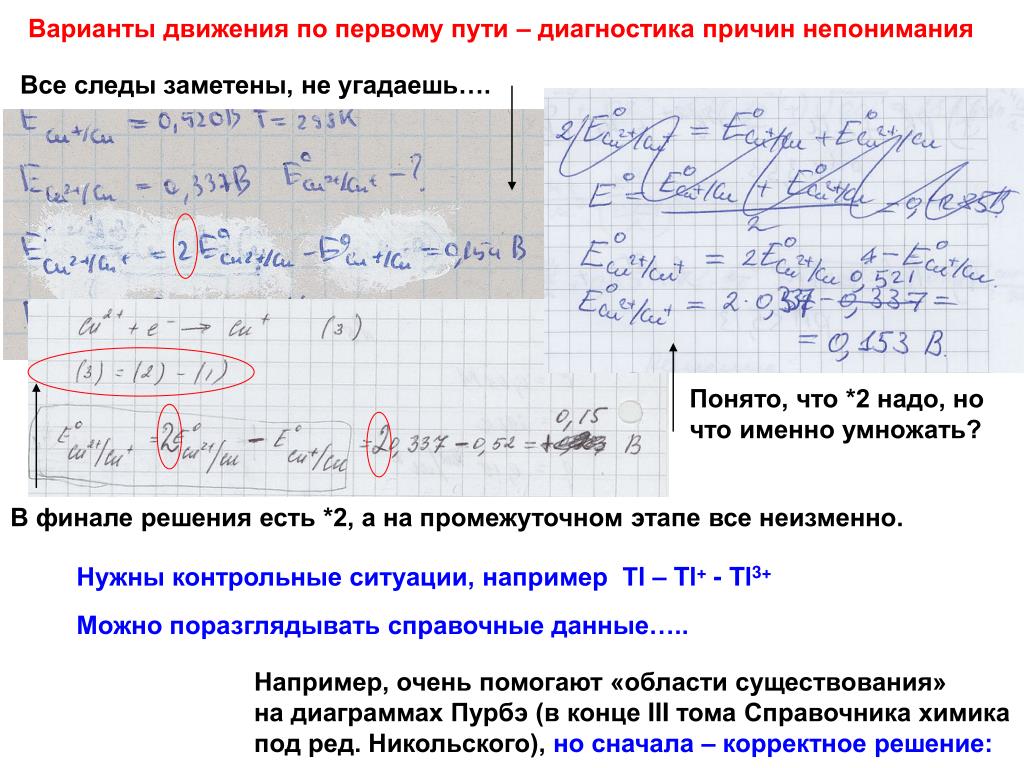 Варианты движения по первому пути – диагностика причин непонимания
Все следы заметены, не угадаешь….
E Cu⁺/Cu = 0,520В T = 298K
E Cu²⁺/Cu = 0,337В E⁰ Cu²⁺/Cu⁺ – ?
E⁰ Cu²⁺/Cu⁺ = 2 E⁰ Cu²⁺/Cu – E⁰ Cu⁺/Cu = 0,154 В
2 E⁰ Cu²⁺/Cu⁺ = E⁰ Cu⁺/Cu + E⁰ Cu²⁺/Cu
E⁰ = E⁰ Cu⁺/Cu + E⁰ Cu²⁺/Cu
2
E⁰ Cu²⁺/Cu⁺ = 2E⁰ Cu²⁺/Cu – E⁰ Cu⁺/Cu
0,521
E⁰ Cu²⁺/Cu⁺ = 2·0,337 – 0,337 =
= 0,153 В.
Cu²⁺ + e⁻ → Cu⁺ (3)
(3) = (2) – (1)
0,15
E⁰ Cu²⁺/Cu⁺ = 2E⁰ Cu²⁺/Cu – E⁰ Cu⁺/Cu = 2 0,337 – 0,52 = В
Понято, что *2 надо, но
что именно умножать?
В финале решения есть *2, а на промежуточном этапе все неизменно.
Нужны контрольные ситуации, например Tl – Tl⁺ - Tl³⁺
Можно поразглядывать справочные данные…..
Например, очень помогают «области существования»
на диаграммах Пурбэ (в конце III тома Справочника химика
под ред. Никольского), но сначала – корректное решение: